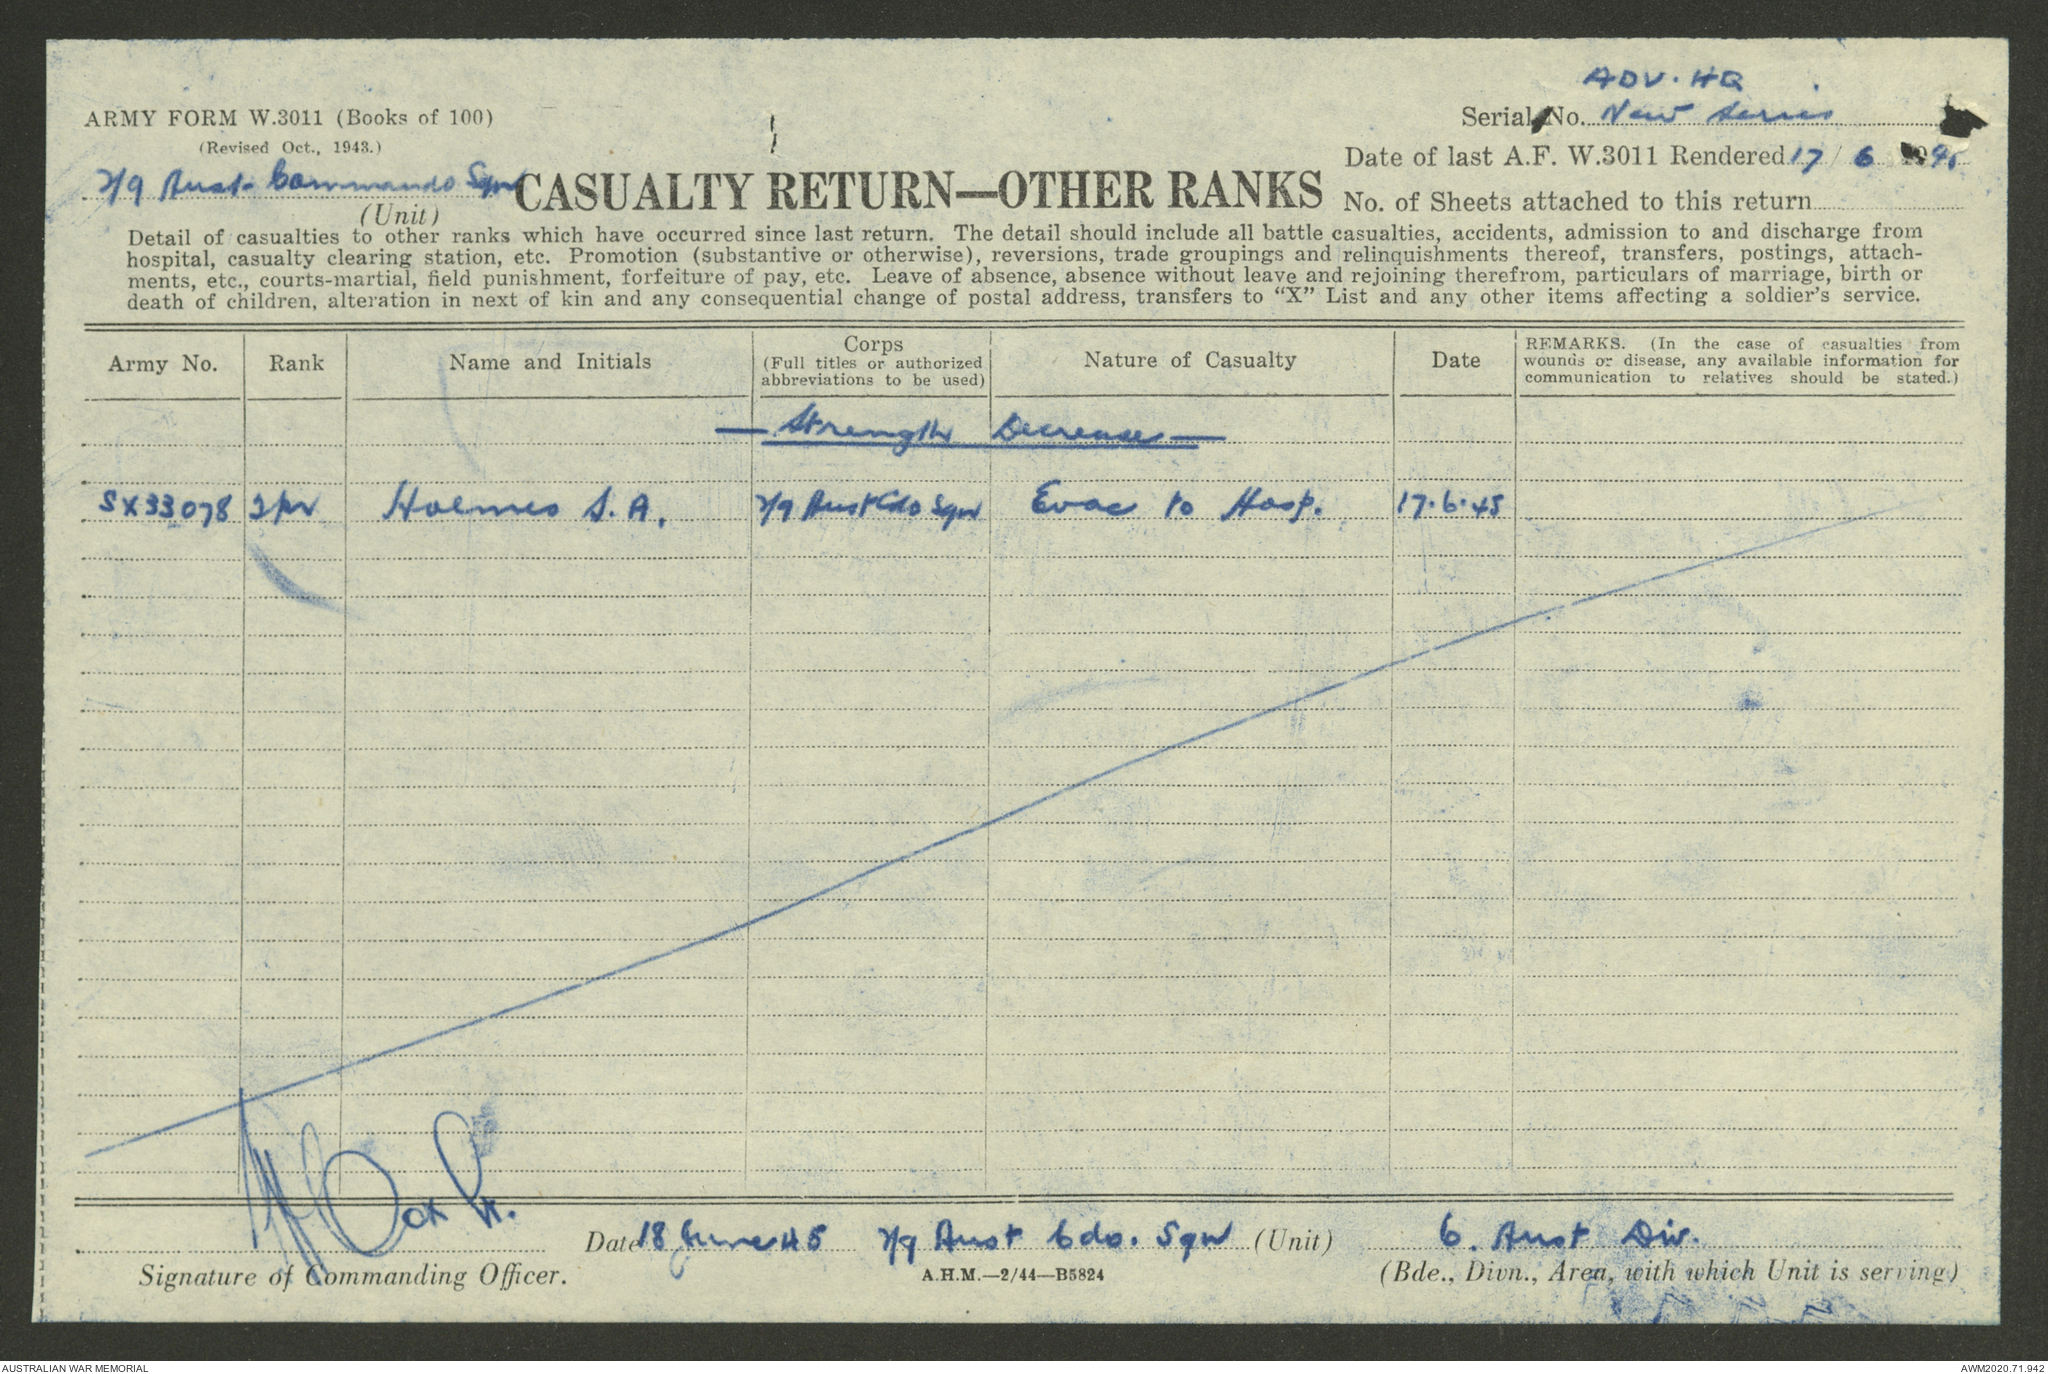 ADV. HQ
ARMY FORM W.3011 (Books of 100)
Serial No. New Series
(Revised Oct., 1943.)
Date of last A.F. W.3011 Rendered 17 / 6 1945
2/9 Aust. Commando Sqn
(Unit)
CASUALTY RETURN—OTHER RANKS
No. of Sheets attached to this return
Detail of casualties to other ranks which have occurred since last return. The detail should include all battle casualties, accidents, admission to and discharge from
hospital, casualty clearing station, etc. Promotion (substantive or otherwise), reversions, trade groupings and relinquishments thereof, transfers, postings, attach-
ments, etc., courts-martial, field punishment, forfeiture of pay, etc. Leave of absence, absence without leave and rejoining therefrom, particulars of marriage, birth or
death of children, alteration in next of kin and any consequential change of postal address, transfers to “X” List and any other items affecting a soldier’s service.
Army No.
Rank
Name and Initials
Corps
(Full titles or authorized
abbreviations to be used)
Nature of Casualty
Date
REMARKS. (In the case of casualties from
wounds or disease, any available information for
communication to relatives should be stated.)
— Strength Decrease —
SX33078 Tpr Holmes S. A. 2/9 Aust Cdo Sqn Evac to Hosp. 17.6.45
Date 18 June 45 2/9 Aust Cdo. Sqn (Unit) 6. Aust Div.
Signature of Commanding Officer.
A.H.M.—2/44—B5824
(Bde., Divn., Area, with which Unit is serving)
AUSTRALIAN WAR MEMORIAL
AWM2020.71.942